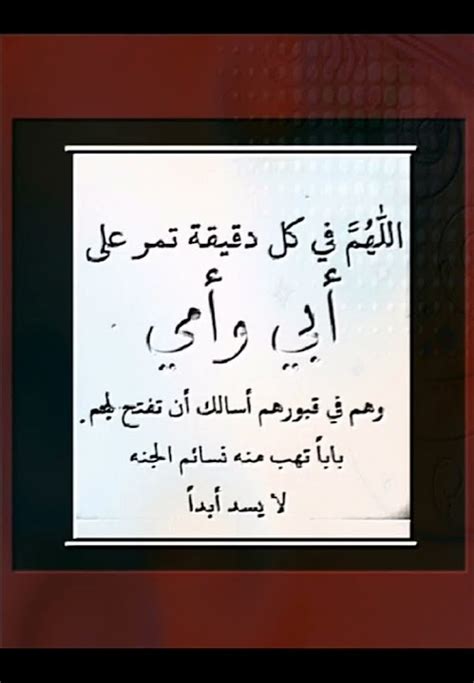 اللّٰهُمَّ في كل دقيقة تمر على
أبي وأمي
وهم في قبورهم أسالك أن تفتح لهم.
باباً تهب منه نسائم الجنه
لا يسد أبداً